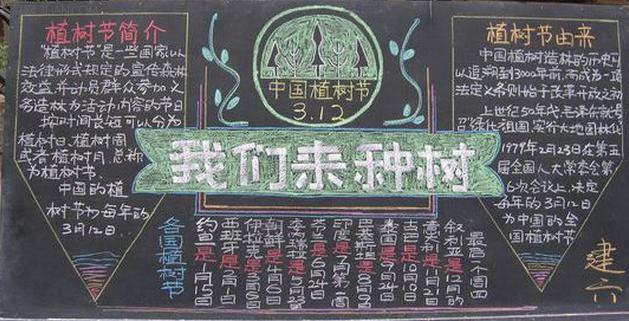 植树节简介
"植树节"是一些国家以
法律形式规定的宣传森林
效益,并动员群众参加义
务造林为活动内容的节日
按时间长短可以分为
植树日、植树周
或者植树月,总称
为植树节.
中国的植
树节为每年的
3月12日.
中国植树节
3.12
我们来种树
植树节由来
中国植树造林的历史可
以追溯到3000年前,而成为一项
法定义务则始于改革开放之初
上世纪50年代,毛泽东就号
召"绿化祖国,实行大地园林化
1979年2月23日在第五
届全国人大常委会第
6次会议上,决定
每年的3月12日
为中国的全
国植树节
各国植树节
约旦是1月15日
西班牙是2月1日
伊拉克是3月6日
朝鲜是4月6日
芬兰是6月24日
印度是7月第一周
泰国是9月24日
意大利是11月21日
叙利亚是12月的
最后一个周四
建六